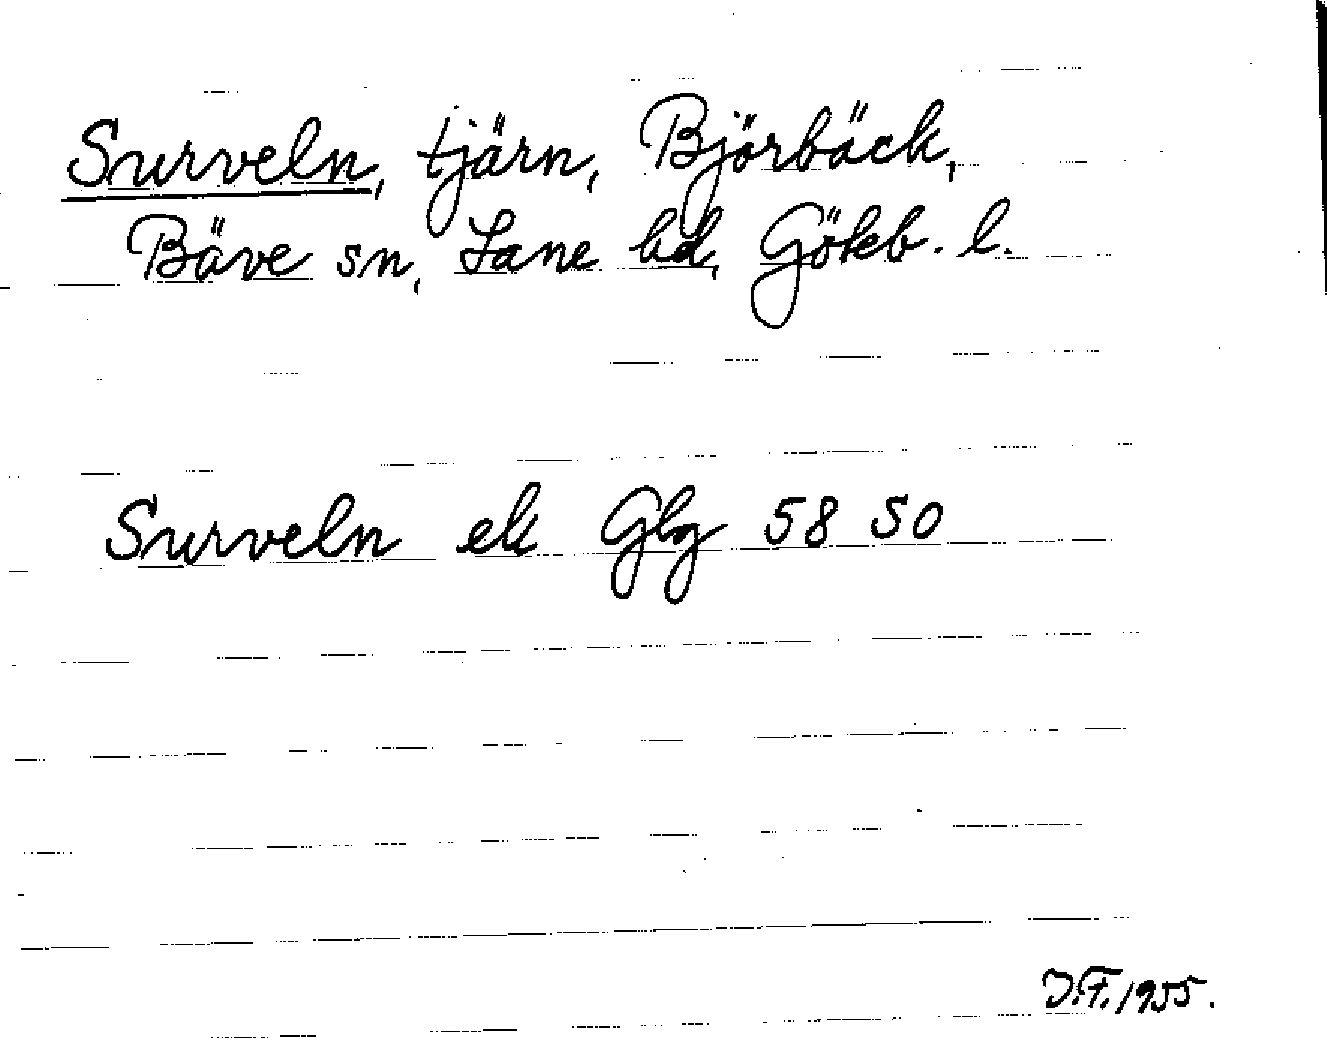 Surveln, tjärn, Björbäck,
Bäve sn, Lane hd, Göteb. l.
Surveln ek Glg 58 SO
J.F. 1955.